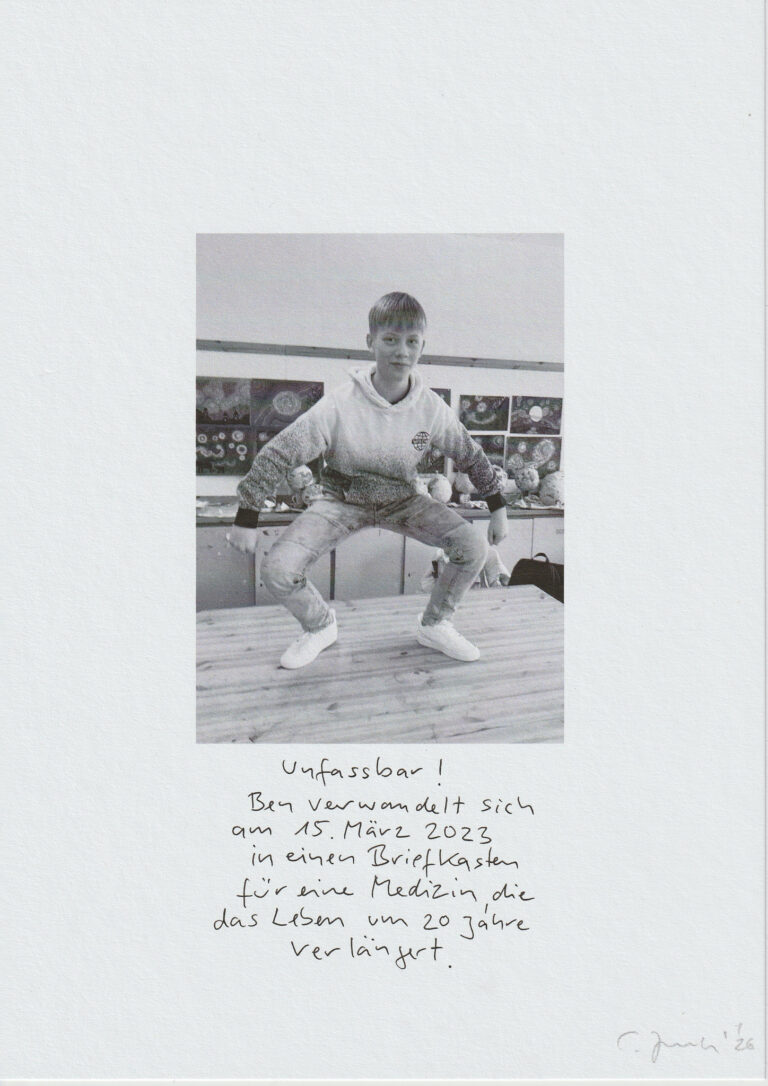 Unfassbar!
Ben verwandelt sich
am 15. März 2023
in einen Briefkasten
für eine Medizin, die
das Leben um 20 Jahre
verlängert.